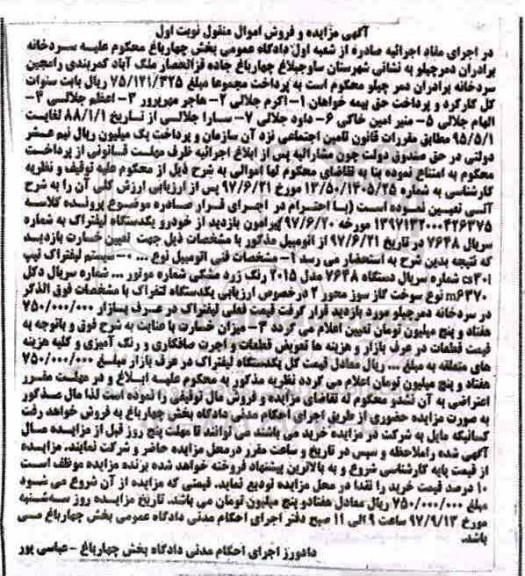 آگهی مزایده و فروش اموال منقول نوبت اول
در اجرای مفاد اجرائیه صادره از شعبه اول دادگاه عمومی بخش چهارباغ محکوم علیه سردخانه
برادران دمرچیلو به نشانی شهرستان ساوجبلاغ چهارباغ جاده قزالحصار ملک آباد کمربندی رامجین
سردخانه برادران دمر چیلو محکوم است به پرداخت مجموعا مبلغ ۷۵/۱۲۱/۳۲۵ ریال بابت سنوات
کل کارکرد و پرداخت حق بیمه خواهان ۱-اکرم جلالی ۲- هاجر مهرپرور ۳- اعظم جلالی ۴-
الهام جلالی ۵- منیر امین خاکی ۶- داود جلالی ۷- سارا جلالی از تاریخ ۸۸/۱/۱ لغایت
۹۵/۵/۱ مطابق مقررات قانون تامین اجتماعی نزد آن سازمان و پرداخت یک میلیون ریال نیم عشر
دولتی در حق صندوق دولت چون مشارالیه پس از ابلاغ اجرائیه ظرف مهلت قانونی از پرداخت
محکوم به امتناع نموده بنا به تقاضای محکوم لها اموالی به شرح ذیل از محکوم علیه توقیف و نظریه
کارشناسی به شماره ۱۳/۵۰/۱۴۰۵/۲۵ مورخ ۹۷/۶/۲۱ پس از ارزیابی ارزش کلی آن را به شرح
آتی تعیین نموده است (با احترام در اجرای قرار صادره موضوع پرونده کلاسه
۱۳۹۷۱۲۲۰۰۰۴۲۶۳۷۵ مورخه ۹۷/۶/۲۰ پیرامون بازدید از خودرو یکدستگاه لیفتراک به شماره
سریال ۷۶۴۸ در تاریخ ۹۷/۶/۲۱ از اتومبیل مذکور با مشخصات ذیل جهت تعیین خسارت بازدید
که نتیجه بدین شرح به استحضار می رسد ۱- مشخصات فنی اتومبیل نوع ... ۰- سیستم لیفتراک تیپ
cs۳۰۱ شماره سریال دستگاه ۷۶۴۸ مدل ۲۰۱۵ رنگ زرد مشکی شماره موتور ... شماره سریال دکل
m۶۳۷۰ نوع سوخت گاز سوز محور ۲ درخصوص ارزیابی یکدستگاه لتفراک با مشخصات فوق الذکر
در سردخانه دمرچیلو مورد بازدید قرار گرفت قیمت فعلی لیفتراک در عرف بازار ۷۵۰/۰۰۰/۰۰۰
هفتاد و پنج میلیون تومان تعیین اعلام می گردد ۳- میزان خسارت با عنایت به شرح فوق و باتوجه به
قیمت قطعات در عرف بازار و هزینه ها تعویض قطعات و اجرت صافکاری و رنگ آمیزی و کلیه هزینه
های متعلقه به مبلغ ... ریال معادل قیمت کل یکدستگاه لیفتراک در عرف بازار مبلغ ۷۵۰/۰۰۰/۰۰۰
هفتاد و پنج میلیون تومان اعلام می گردد نظریه مذکور به محکوم علیه ابلاغ و در مهلت مقرر
اعتراضی به آن نشدو محکوم له تقاضای مزایده و فروش مال توقیفی را نموده است لذا مال مذکور
به صورت مزایده حضوری از طریق اجرای احکام مدنی دادگاه بخش چهارباغ به فروش خواهد رفت
کسانیکه مایل به شرکت در مزایده خرید می باشند می توانند تا مهلت پنج روز قبل از مزایده مال
آگهی شده راملاحظه و سپس در تاریخ و ساعت مقرر درمحل مزایده حاضر و شرکت نمایند. مزایده
از قیمت پایه کارشناسی شروع و به بالاترین پیشنهاد فروخته خواهد شده برنده مزایده موظف است
۱۰ درصد قیمت خرید را نقدا در محل مزایده تودیع نماید. قیمتی که مزایده از آن شروع می شود
مبلغ ۷۵۰/۰۰۰/۰۰۰ ریال معادل هفتادو پنج میلیون تومان می باشد. تاریخ مزایده روز سه‌شنبه
مورخ ۹۷/۹/۱۳ ساعت ۹ الی ۱۱ صبح دفتر اجرای احکام مدنی دادگاه عمومی بخش چهارباغ می
باشد.
دادورز اجرای احکام مدنی دادگاه بخش چهارباغ - عباسی پور